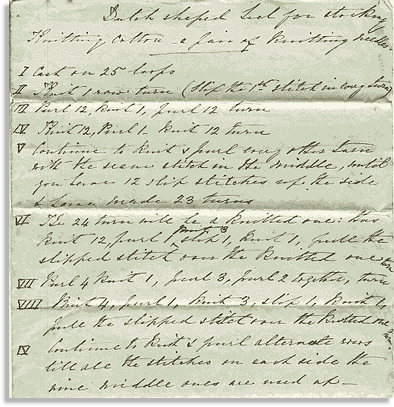 Dutch shaped heel for stocking
Knitting Cotton a pair of Knitting needles
I Cast on 25 loops
II Knit 1 row turn (slip the 1st stitch in every turn)
III Purl 12, Knit 1, purl 12 turn
IV Knit 12, Purl 1. Knit 12 turn
V Continue to Knit & purl every other turn
with the seam stitch in the middle, until
you have 12 slip stitches up the side
& have made 23 turns
VI The 24 turn will be a Knitted one: thus
Knit 12, purl 1, Knit 3 slip 1, Knit 1, pull the
slipped stitch over the Knitted one turn
VII Purl 4 Knit 1, purl 3, purl 2 together, turn
VIII Knit 4, purl 1, Knit 3, slip 1, Knit 1,
pull the slipped stitch over the Knitted one
IX Continue to Knit & purl alternate rows
till all the stitches on each side the
nine middle ones are used up—